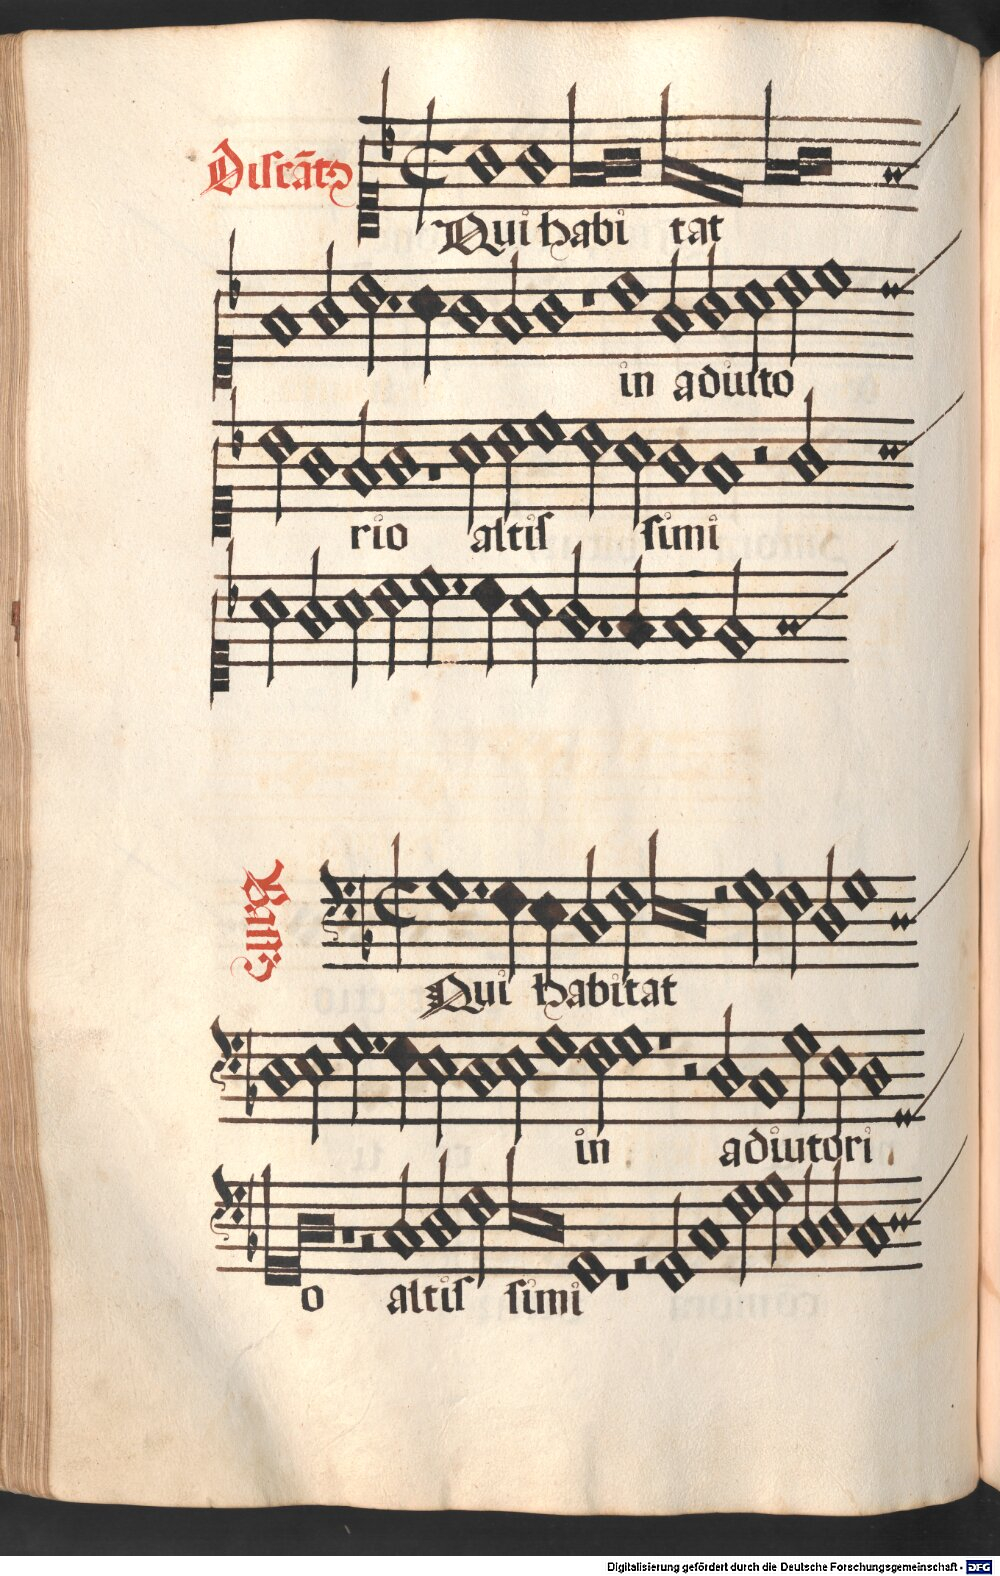 Discãtꝫ
Qui habi tat
in adiuto
rio altis simi
Bassꝫ
Qui habitat
in adiutori
o altis simi
Digitalisierung gefördert durch die Deutsche Forschungsgemeinschaft - DFG